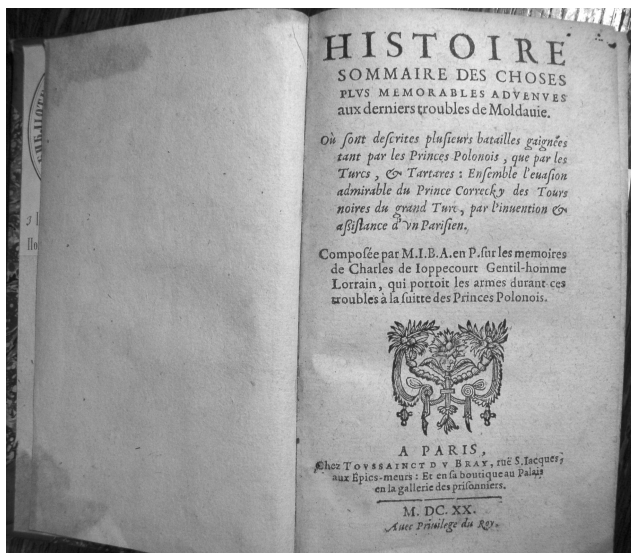 HISTOIRE
SOMMAIRE DES CHOSES
PLVS MEMORABLES ADVENVES
aux derniers troubles de Moldauie.
Où ſont deſcrites pluſieurs batailles gaignées
tant par les Princes Polonois, que par les
Turcs, & Tartares : Enſemble l'euaſion
admirable du Prince Correcky des Tours
noires du grand Turc, par l'inuention &
aſſiſtance d'vn Pariſien.
Compoſée par M.I.B.A. en P. ſur les memoires
de Charles de Ioppecourt Gentil-homme
Lorrain, qui portoit les armes durant ces
troubles à la ſuitte des Princes Polonois.
A PARIS,
Chez TOVSSAINCT DV BRAY, ruë S. Iacques,
aux Epics-meurs : Et en ſa boutique au Palais
en la gallerie des priſonniers.
M. DC. XX.
Auec Priuilege du Roy.